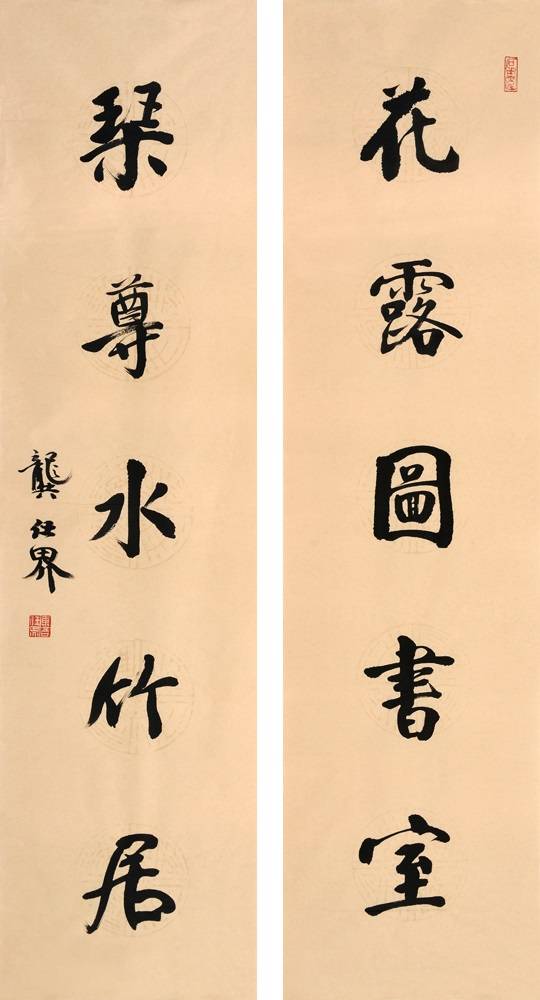 花露圖書室
琹尊水竹居
龔仕界